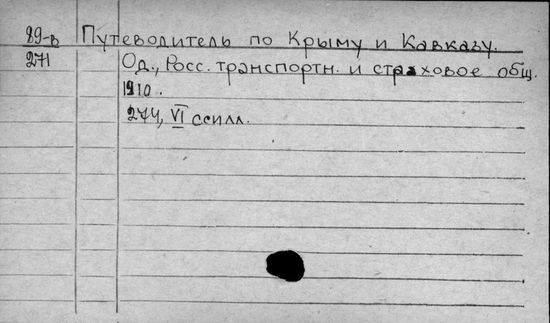 89-в Путеводитель по Крыму и Кавказу.
271 Од., Росс. транспортн. и страховое общ.
1910.
274, VI с илл.